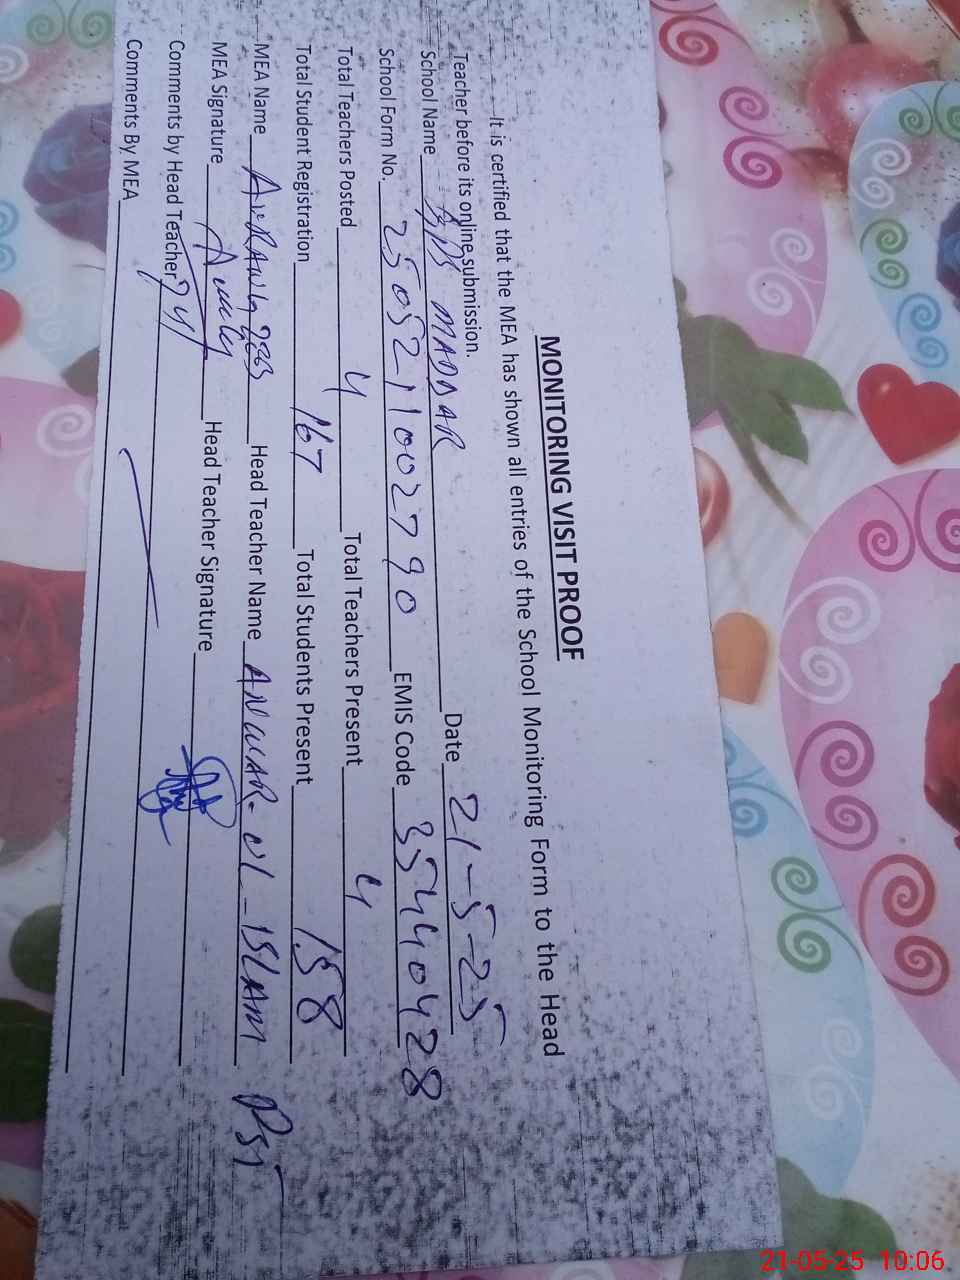 MONITORING VISIT PROOF
It is certified that the MEA has shown all entries of the School Monitoring Form to the Head
Teacher before its online submission.
School Name GPS MADDAR Date 21-5-25
School Form No. 25052110027 90 EMIS Code 35440428
Total Teachers Posted 4 Total Teachers Present 4
Total Student Registration 167 Total Students Present 158
MEA Name AURANGZEB Head Teacher Name ANWAR-UL-ISLAM PST
MEA Signature Head Teacher Signature
Comments by Head Teacher
Comments By MEA
21-05-25 10:06